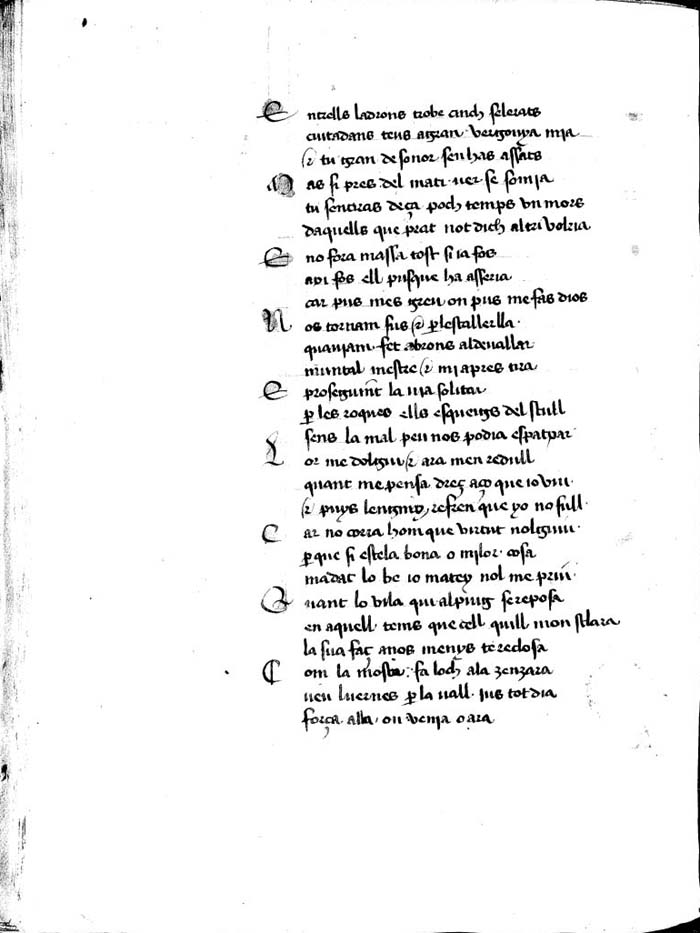 Entrells ladrons trobe cinch selerats
ciutadans teus agran vergonya mia
e tu gran desonor sen has assats
Mas si pres del mati ver se somia
tu sentiras deça poch temps un mors
daquells que prat not dich altri volria
E no fora massa tost si ia fos
axi fos ell pusque ha asseria
car pus mes greu on pus me fas dios
Nos tornam sus e p lestallerlla
quauiam fet abrons aldeuallar
muntal mestre e mi apres tira
E proseguint la via solitar
p les roques ells esquengs del scull
sens la mal peu nos podia espatpar
Lor me dolgui e ara men redull
quant me pensa dreç aço que io viu
e puys lenginy refren que yo no sull
Car no corra hom que virtut nol guiu
p que si estela bona o milor cosa
madat lo be io matey nol me priu
Quant lo vila qui alpuig se reposa
en aquell tems que cell quill mon sclara
la sua faç anos menys te reclosa
Com la mosca fa loch ala zenzara
veu luernes p la vall ius tot dia
força alla on venia o ara